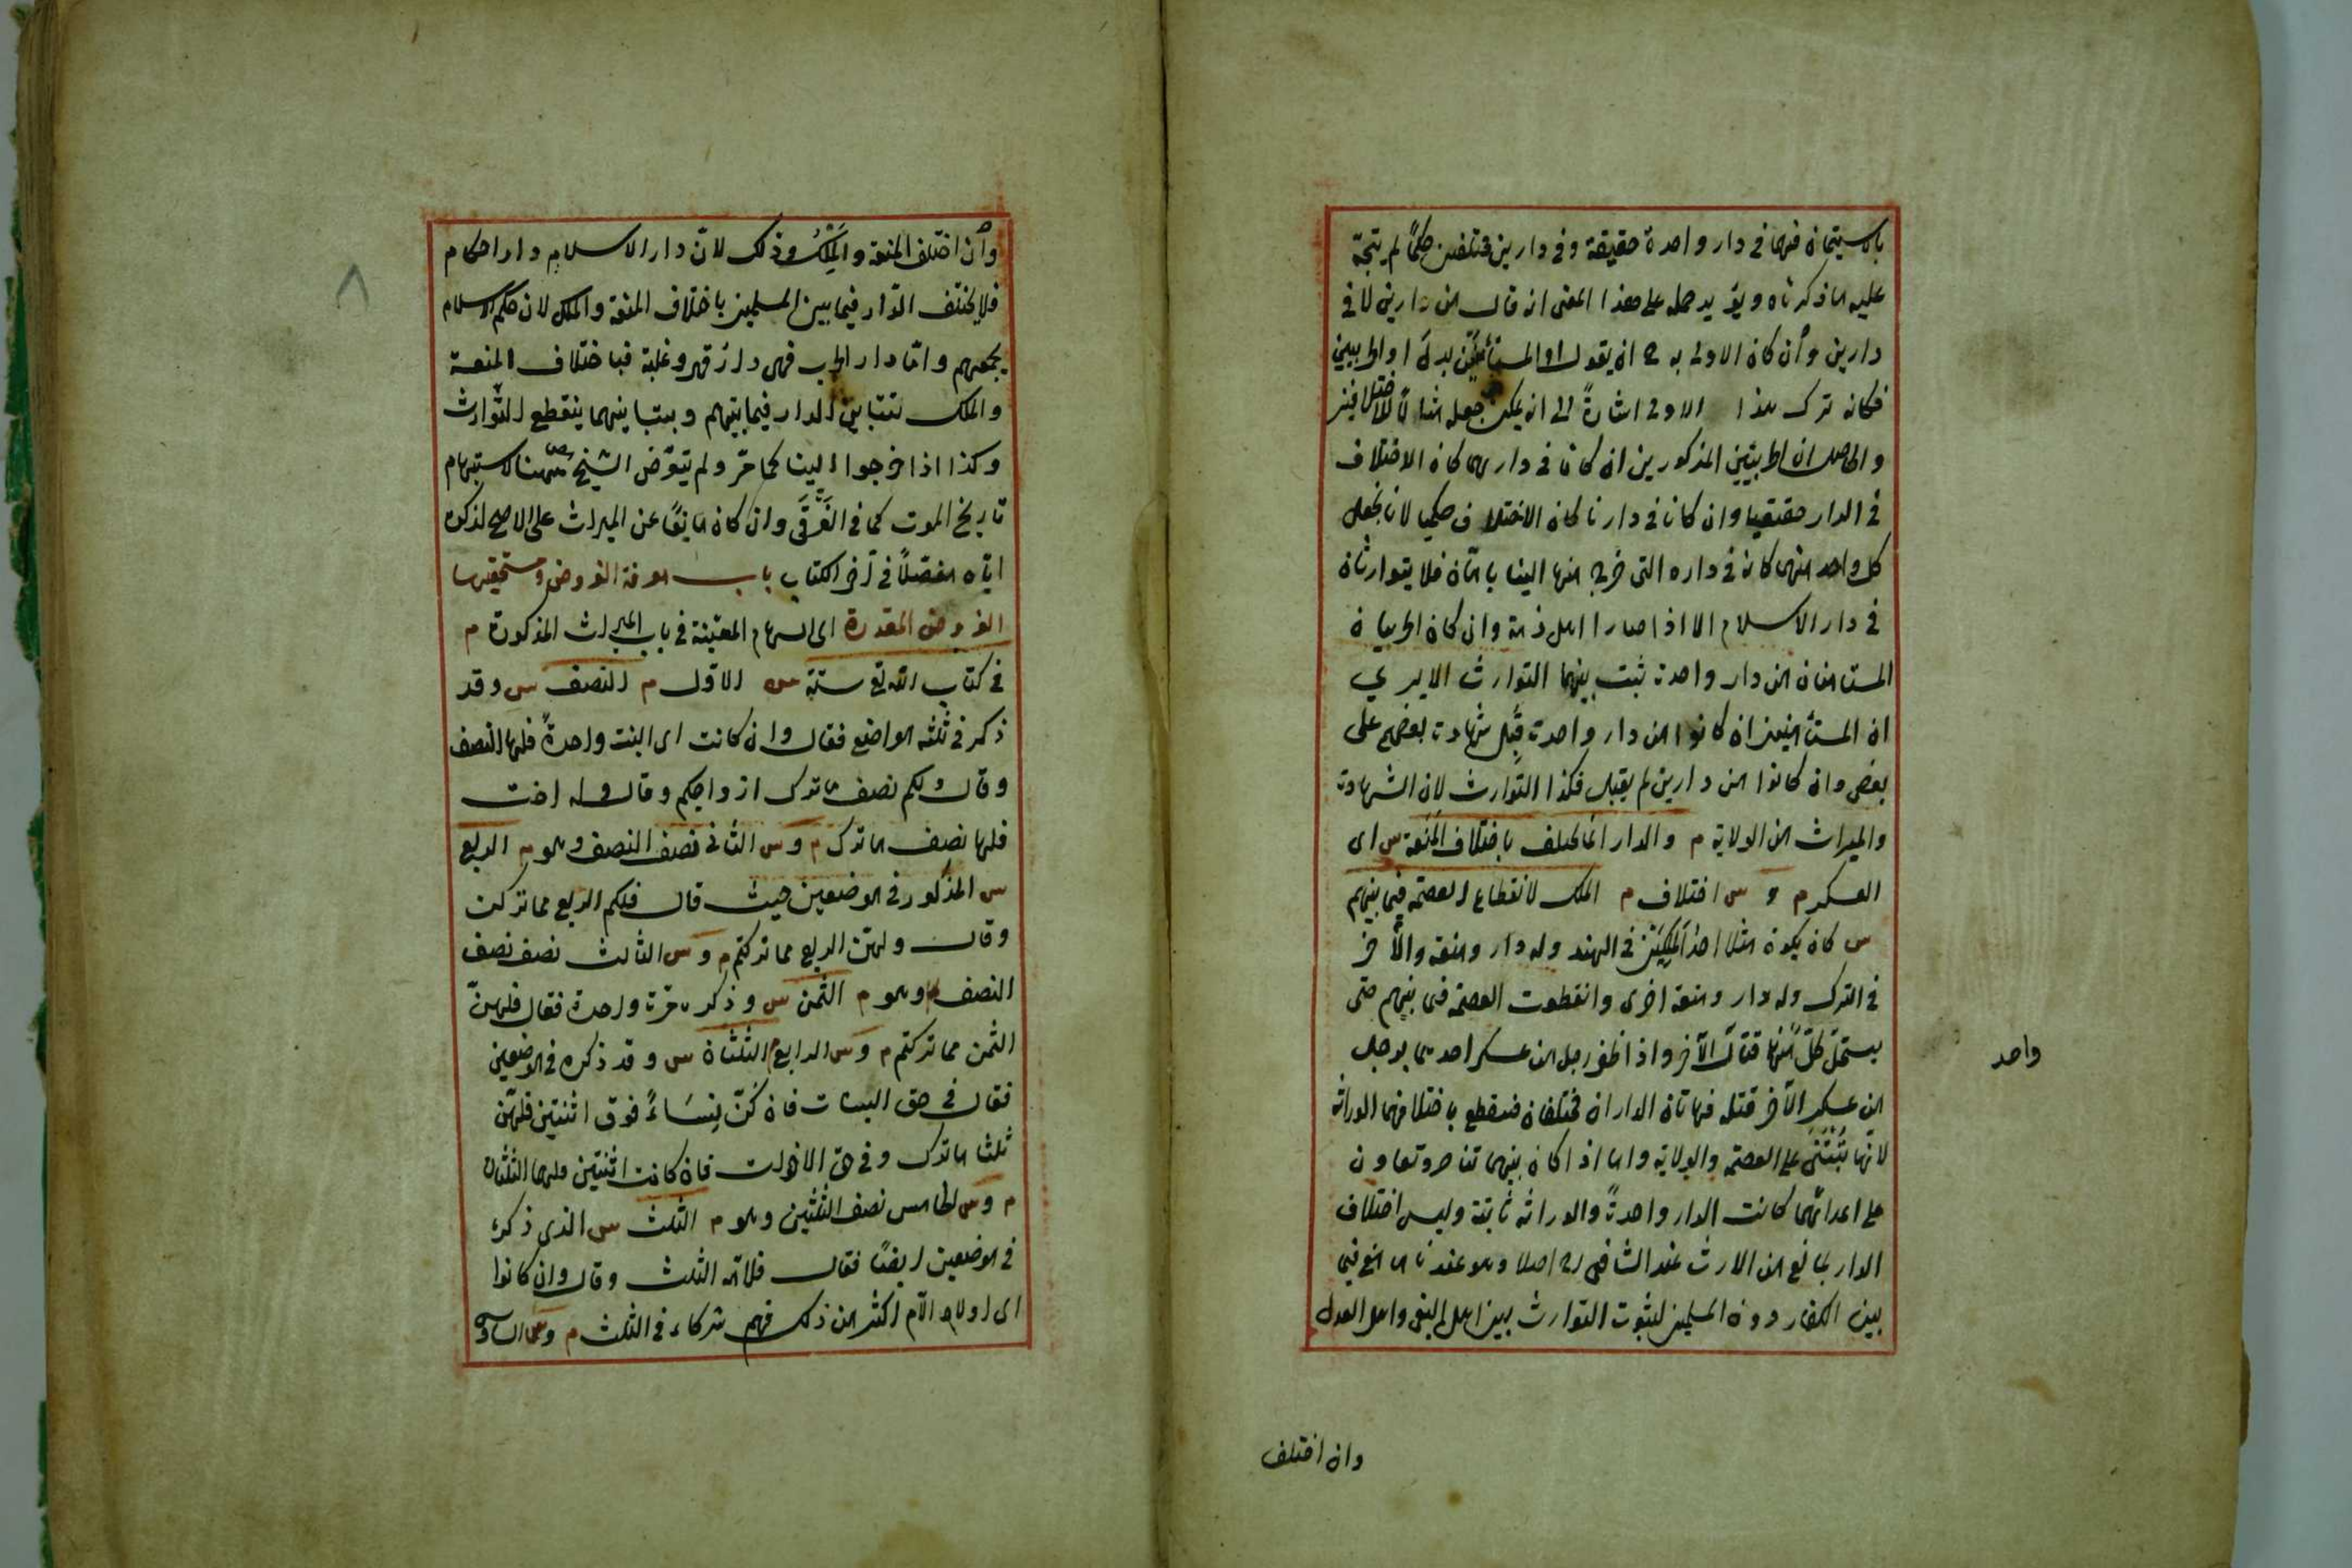 باستيمان فهما في دار واحدة حقيقة وفي دارين مختلفين حكمًا لم يتجه
عليه ما ذكرناه ويؤيد حمله على هذا المعنى انه قال من دارين لا في
دارين وأن كان الاولى به ح ان يقول او المستأمنين بدل او الحربيين
فكانه ترك هذا الاولى اشارةً الى انه يمكن جعله مثالًا للاختلافين
والحاصل ان الحربيين المذكورين ان كانا في داريهما كان الاختلاف
في الدار حقيقيا وان كانا في دارنا كان الاختلاف حكميا لانا نجعل
كل واحد منهما كانه في داره التي خرج منها الينا بامان فلا يتوارثان
في دار الاسلام الا اذا صارا اهل ذمة وان كان الحربيان
المستامنان من دار واحدة ثبت بينهما التوارث الا يرى
ان المستأمنين ان كانوا من دار واحدة قبل شهادة بعضهم على
بعض وان كانوا من دارين لم يقبل فكذا التوارث لان الشهادة
والميراث من الولاية م والدار انما تختلف باختلاف المنعة س اى
العسكر م و س اختلاف م الملك لانقطاع العصمة فيما بينهم
س كان يكون مثلا احد الملكين في الهند وله دار ومنعة والآخر
في الترك وله دار ومنعة اخرى وانقطعت العصمة فيما بينهم حتى
يستحل كل منهما قتال الآخر واذا ظفر رجل من عسكر احدهما برجل
من عسكر الآخر قتله فهاتان الداران مختلفتان فينقطع باختلافهما الوراثة
لانها تبتنى على العصمة والولاية واما اذا كان بينهما تناصر وتعاون
على اعدائهما كانت الدار واحدةً والوراثة ثابتة وليس اختلاف
الدار بمانع من الارث عند الشافعي رح اصلا وهو عندنا مانع فيما
بين الكفار دون المسلمين لثبوت التوارث بين اهل البغى واهل العدل
واحد
وان اختلف
٨
وأن اختلف المنعة والملك وذلك لانّ دار الاسلام دار احكام
فلا يختلف الدار فيما بين المسلمين باختلاف المنعة والملك لان حكم الاسلام
يجمعهم وامّا دار الحرب فهى دار قهر وغلبة فباختلاف المنعة
والملك تتباين الدار فيما بينهم وبتباينهما ينقطع التوارث
وكذا اذا خرجوا الينا كما مرّ ولم يتعرّض الشيخ ههنا لاستبهام
تاريخ الموت كما في الغَرْقَى وان كان مانعًا عن الميراث على الاصح لذكره
ايّاه مفصّلًا في آخر الكتاب باب معرفة الفروض ومستحقيها
الفروض المقدرة اى السهام المعيّنة في باب الميراث المذكورة م
في كتاب الله تع ستة س الاوّل م النصف س وقد
ذكر في ثلثه مواضع فقال وان كانت اى البنت واحدةً فلها النصف
وقال ولكم نصف ما ترك ازواجكم وقال وله اخت
فلها نصف ما ترك م و س الثانى نصف النصف وهو م الربع
س المذكور في موضعين حيث قال فلكم الربع مما تركن
وقال ولهنّ الربع مما تركتم م و س الثالث نصف نصف
النصف وهو م الثمن س وذكره مرّة واحدة فقال فلهنّ
الثمن مما تركتم م و س الرابع م الثلثان س وقد ذكره في موضعين
فقال في حق البنات فان كنّ نِسَاءً فوق اثنتين فلهنّ
ثلثا ما ترك وفي حق الاخوات فان كانتا اثنتين فلهما الثلثان
م و س الخامس نصف الثلثين وهو م الثلث س الذى ذكره
في موضعين ايضًا فقال فلامّه الثلث وقال وان كانوا
اى اولاد الام اكثر من ذلك فهم شركاء في الثلث م و س السادس